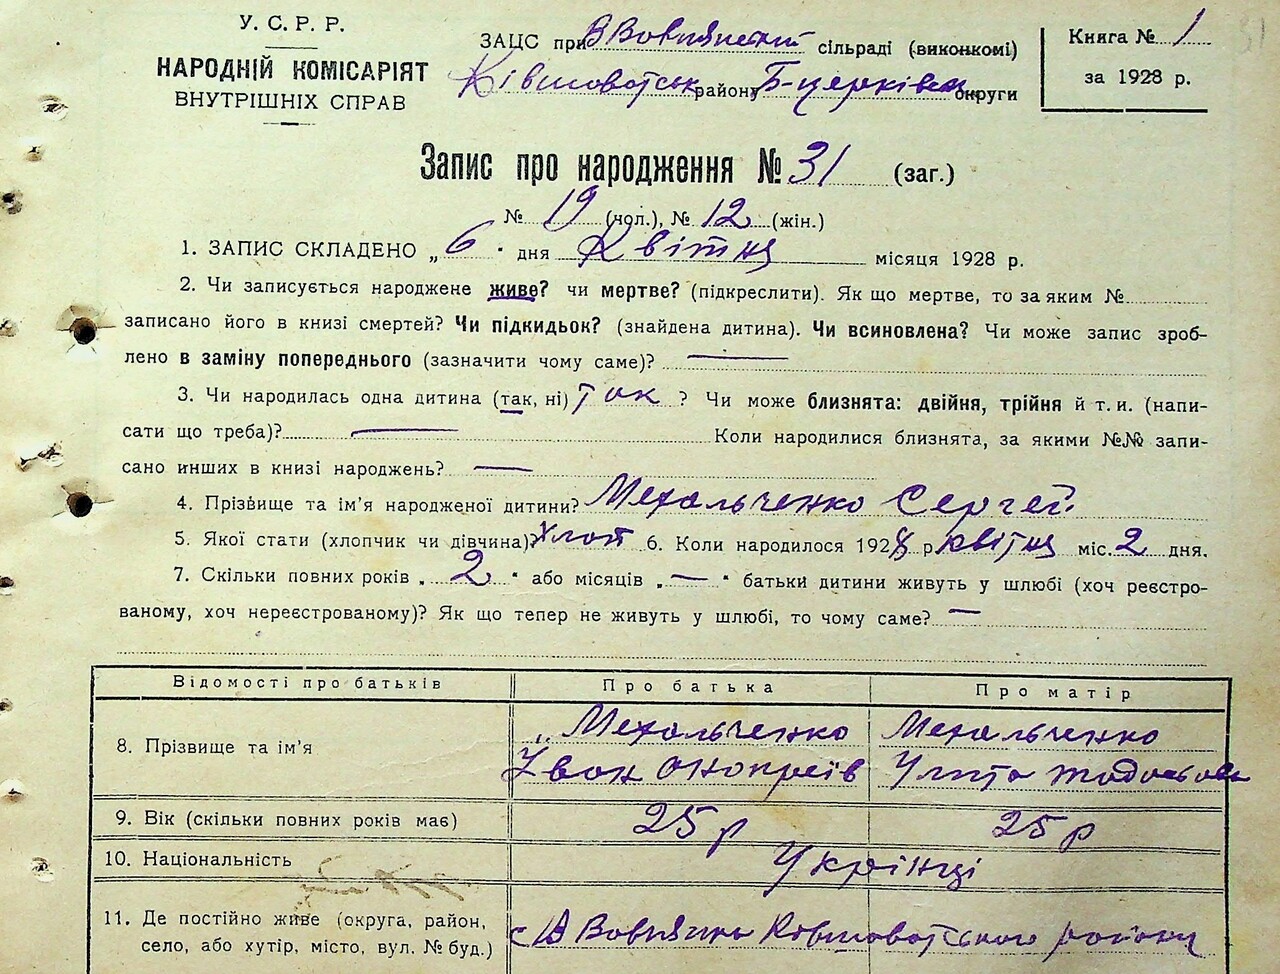 У. С. Р. Р.
НАРОДНІЙ КОМІСАРІЯТ
ВНУТРІШНІХ СПРАВ
ЗАЦС при сільраді (виконкомі)
району Б-церківськ округи
Книга № 1
за 1928 р.
Запис про народження № 31 (заг.)
№ 19 (чол.), № 12 (жін.)
1. ЗАПИС СКЛАДЕНО „ 6 " дня Квітня місяця 1928 р.
2. Чи записується народжене живе? чи мертве? (підкреслити). Як що мертве, то за яким №
записано його в книзі смертей? Чи підкидьок? (знайдена дитина). Чи всиновлена? Чи може запис зроб-
лено в заміну попереднього (зазначити чому саме)? —
3. Чи народилась одна дитина (так, ні) так ? Чи може близнята: двійня, трійня й т. и. (напи-
сати що треба)? — Коли народилися близнята, за якими №№ запи-
сано инших в книзі народжень? —
4. Прізвище та ім'я народженої дитини? Мехальченко Сергей
5. Якої стати (хлопчик чи дівчина)? хлоп 6. Коли народилося 1928 р. квітня міс. 2 дня.
7. Скільки повних років „ 2 " або місяців „ — " батьки дитини живуть у шлюбі (хоч реєстро-
ваному, хоч нереєстрованому)? Як що тепер не живуть у шлюбі, то чому саме? —
Відомості про батьків Про батька Про матір
8. Прізвище та ім'я Мехальченко Мехальченко
Іван Онопреїв Улита
9. Вік (скільки повних років має) 25 р 25 р
10. Національність Укрінці
11. Де постійно живе (округа, район,
село, або хутір, місто, вул. № буд.) району